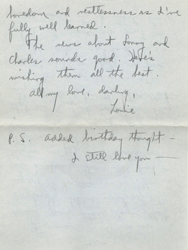 boredom and restlessness as I've
fully well learned.
The news about Sonny and
Charles sounds good. Here's
wishing them all the best
all my love, darling,
Louie
P.S. added birthday thought -
I still love you -